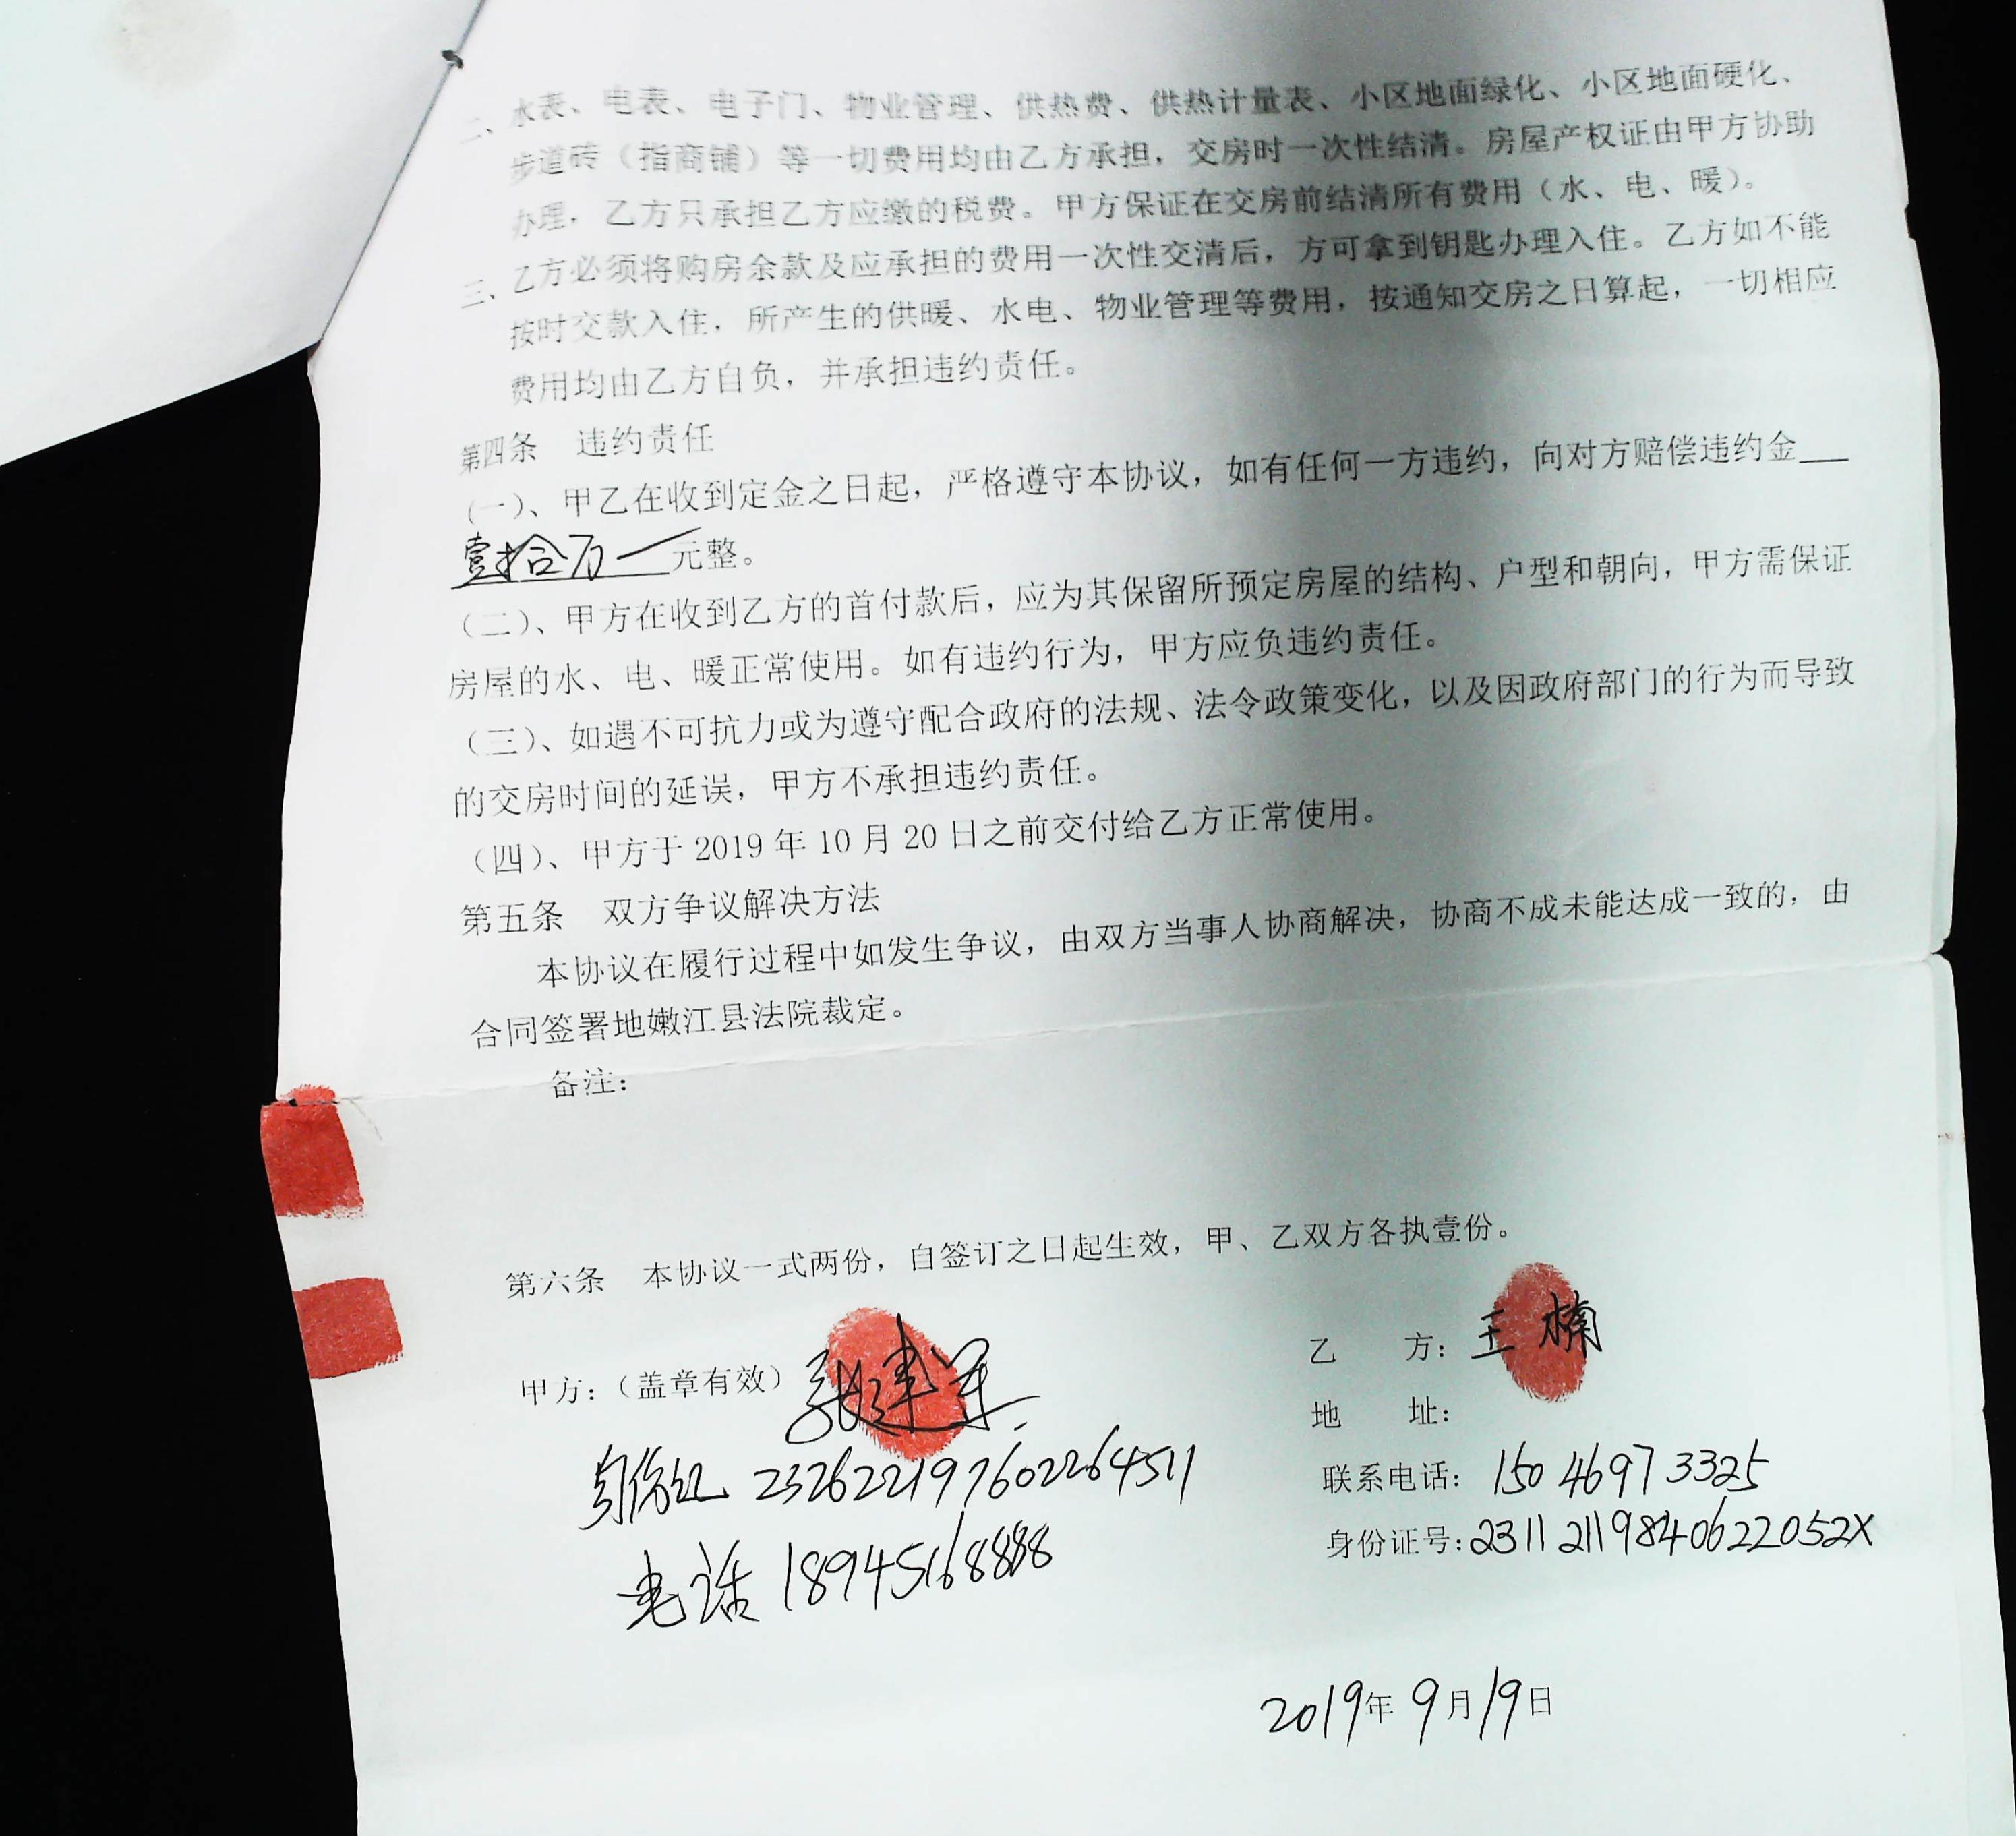 二、水表、电表、电子门、物业管理、供热费、供热计量表、小区地面绿化、小区地面硬化、
步道砖（指商铺）等一切费用均由乙方承担，交房时一次性结清。房屋产权证由甲方协助
办理，乙方只承担乙方应缴的税费。甲方保证在交房前结清所有费用（水、电、暖）。
三、乙方必须将购房余款及应承担的费用一次性交清后，方可拿到钥匙办理入住。乙方如不能
按时交款入住，所产生的供暖、水电、物业管理等费用，按通知交房之日算起，一切相应
费用均由乙方自负，并承担违约责任。
第四条 违约责任
（一）、甲乙在收到定金之日起，严格遵守本协议，如有任何一方违约，向对方赔偿违约金
壹拾万一元整。
（二）、甲方在收到乙方的首付款后，应为其保留所预定房屋的结构、户型和朝向，甲方需保证
房屋的水、电、暖正常使用。如有违约行为，甲方应负违约责任。
（三）、如遇不可抗力或为遵守配合政府的法规、法令政策变化，以及因政府部门的行为而导致
的交房时间的延误，甲方不承担违约责任。
（四）、甲方于 2019 年 10 月 20 日之前交付给乙方正常使用。
第五条 双方争议解决方法
本协议在履行过程中如发生争议，由双方当事人协商解决，协商不成未能达成一致的，由
合同签署地嫩江县法院裁定。
备注：
第六条 本协议一式两份，自签订之日起生效，甲、乙双方各执壹份。
甲方：（盖章有效）张建军
身份证 232622197602264511
电话 18945168888
乙 方：王楠
地 址：
联系电话：15046973325
身份证号：23112119840622052X
2019年9月19日